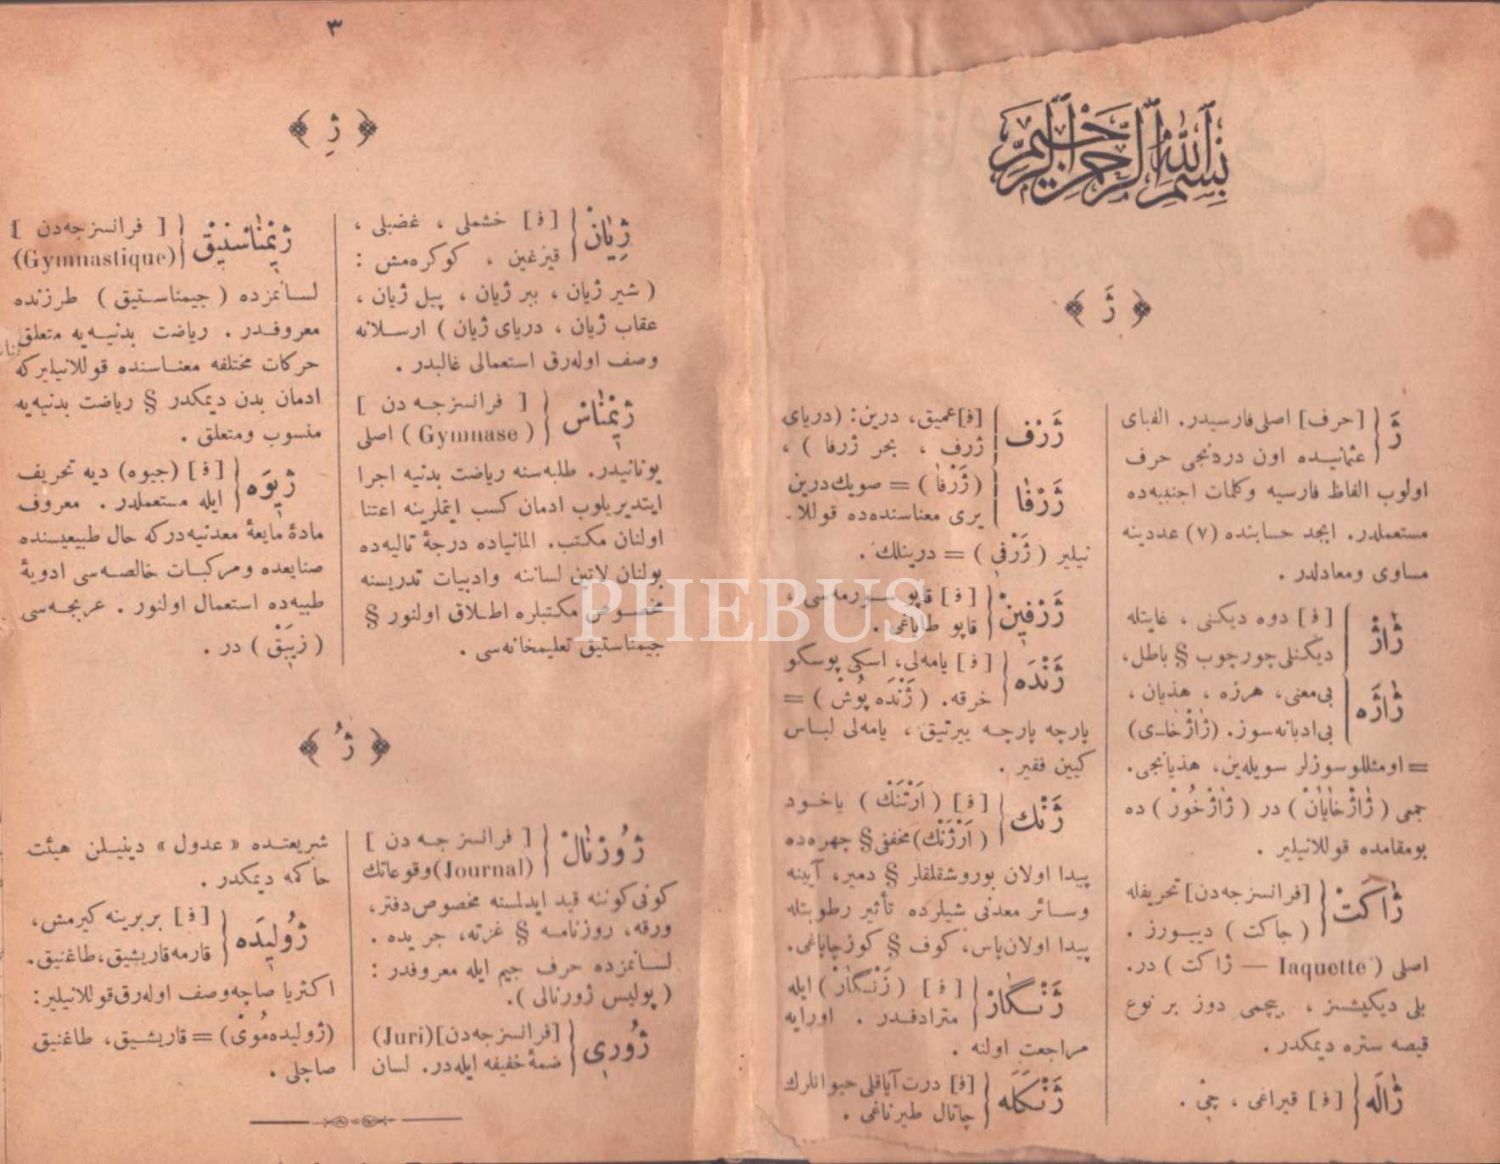 بسم الله الرحمن الرحيم
﴿ ژَ ﴾
ژَ [حرف] اصلی فارسیدر. الفبای
عثمانیده اون دردنجی حرف
اولوب الفاظ فارسیه وکلمات اجنبیه‌ده
مستعملدر. ابجد حسابنده (٧) عددینه
مساوی ومعادلدر .
ژاژ [ف] دوه دیکنی ، غایتله
دیکنلی چورچوب § باطل،
ژاژه بی‌معنی، هرزه ، هذیان ،
بی‌ادبانه‌سوز. (ژاژخای)
= اومثللوسوزلر سویله‌ین، هذیانجی.
جمعی (ژاژخایان) در (ژاژخور) ده
بومقامده قوللانیلیر .
ژاکت [فرانسزجه‌دن] تحریفله
(جاکت) دییورز .
اصلی (Iaquette — ژاکت) در.
بلی دیکیشسز ، بیچمی دوز بر نوع
قیصه ستره دیمکدر .
ژاله [ف] قیراغی ، چی .
ژرف [ف] عمیق، درین: (دریای
ژرف ، بحر ژرفا) ،
ژرفا (ژرفا) = صویك درین
یری معناسنده‌ده قوللا-
نیلیر (ژرفی) = درینلك .
ژرفین [ف] قاپو سورمه‌سی ،
قاپو طایاغی .
ژنده [ف] یامه‌لی، اسکی پوسکو
خرقه. (ژنده پوش) =
پارچه پارچه ییرتیق ، یامه‌لی لباس
کیین فقیر .
ژنك [ف] (ارتنك) یاخود
(ارژنك) مخففی § چهره‌ده
پیدا اولان بوروشقلقلر § دمیر، آیینه
وسائر معدنی شیلرده تأثیر رطوبتله
پیدا اولان پاس، کوف § کوزچاپاغی.
ژنگار [ف] (زنگار) ایله
مترادفدر . اورایه
مراجعت اولنه .
ژنکله [ف] درت آیاقلی حیوانلرك
چاتال طیرناغی .
٣
﴿ ژِ ﴾
ژیان [ف] خشملی ، غضبلی ،
قیزغین ، کوکره‌مش :
(شیر ژیان ، ببر ژیان ، پیل ژیان ،
عقاب ژیان ، دریای ژیان) ارسلانه
وصف اوله‌رق استعمالی غالبدر .
ژیمناس [فرانسزجه دن]
(Gymnase) اصلی
یونانیدر. طلبه‌سنه ریاضت بدنیه اجرا
ایتدیریلوب ادمان کسب ایتملرینه اعتنا
اولنان مکتب. المانیاده درجهٔ تالیه‌ده
بولنان لاتین لساننه وادبیات تدریسنه
مخصوص مکتبلره اطلاق اولنور §
جیمناستیق تعلیمخانه‌سی .
ژیمناستیق [فرانسزجه‌دن]
(Gymnastique)
لسانمزده (جیمناستیق) طرزنده
معروفدر . ریاضت بدنیه‌یه متعلق
حرکات مختلفه معناسنده قوللانیلیرکه
ادمان بدن دیمکدر § ریاضت بدنیه‌یه
منسوب ومتعلق .
ژیوه [ف] (جیوه) دیه تحریف
ایله مستعملدر . معروف
مادهٔ مایعهٔ معدنیه‌درکه حال طبیعیسنده
صنایعده ومرکبات خالصه‌سی ادویهٔ
طبیه‌ده استعمال اولنور . عربجه‌سی
(زیبق) در .
﴿ ژُ ﴾
ژورنال [فرانسزجه دن]
(Journal) وقوعاتك
کونی کوننه قید ایدلمسنه مخصوص دفتر،
ورقه، روزنامه § غزته، جریده .
لسانمزده حرف جیم ایله معروفدر :
(پولیس ژورنالی).
ژوری [فرانسزجه‌دن] (Juri)
ضمهٔ خفیفه ایله‌در. لسان
شریعتده « عدول » دینیلن هیئت
حاکمه دیمکدر .
ژولیده [ف] بربرینه کیرمش،
قارمه قاریشیق، طاغنیق.
اکثریا صاچه وصف اوله‌رق قوللانیلیر:
(ژولیده‌موی) = قاریشیق، طاغنیق
صاچلی .
PHEBUS